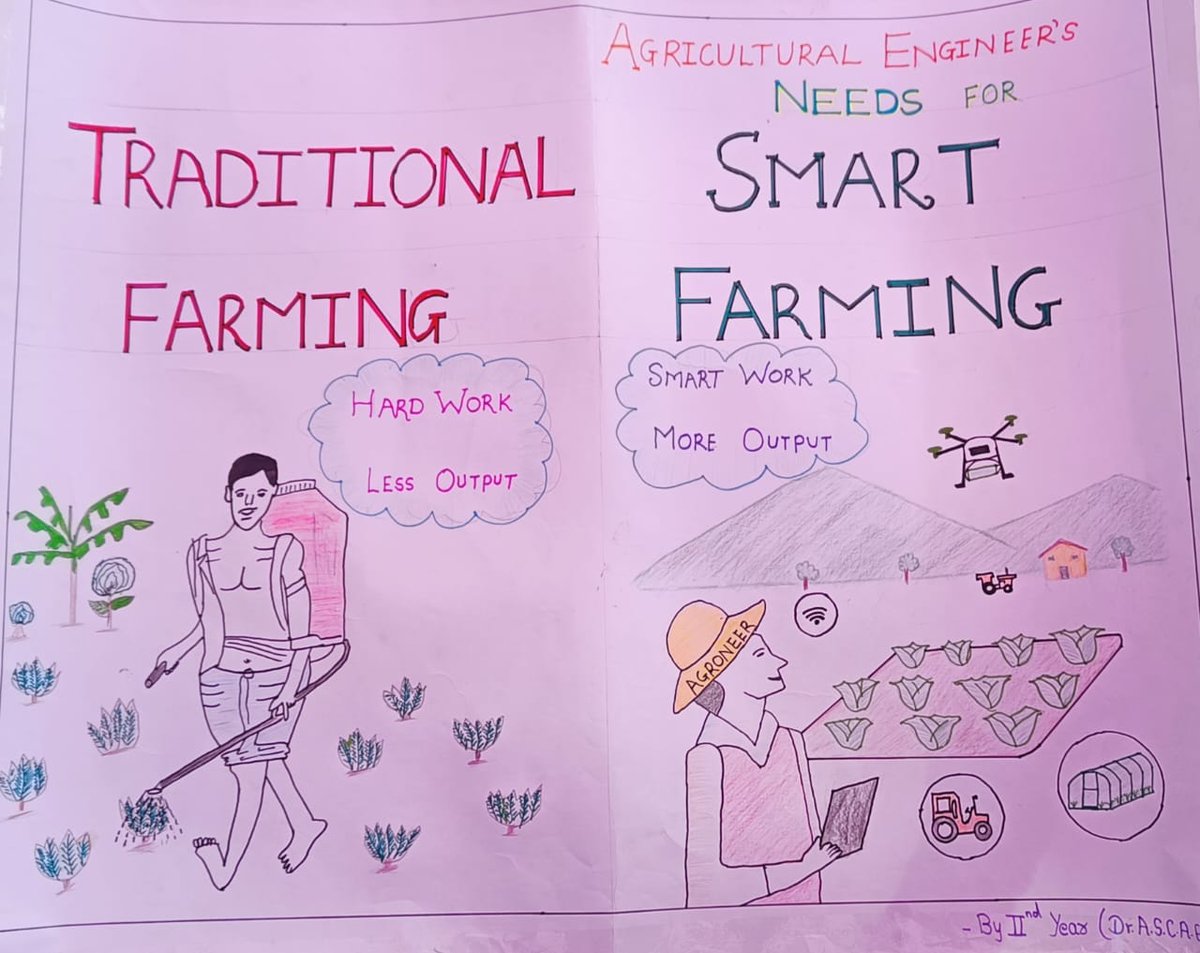 TRADITIONAL
FARMING
HARD WORK
LESS OUTPUT
AGRICULTURAL ENGINEER'S
NEEDS FOR
SMART
FARMING
SMART WORK
MORE OUTPUT
AGRONEER
- By IInd Year (Dr. A.S.C.A.E